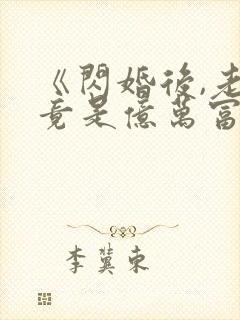 《閃婚後,老
竟是億萬富
李冀東